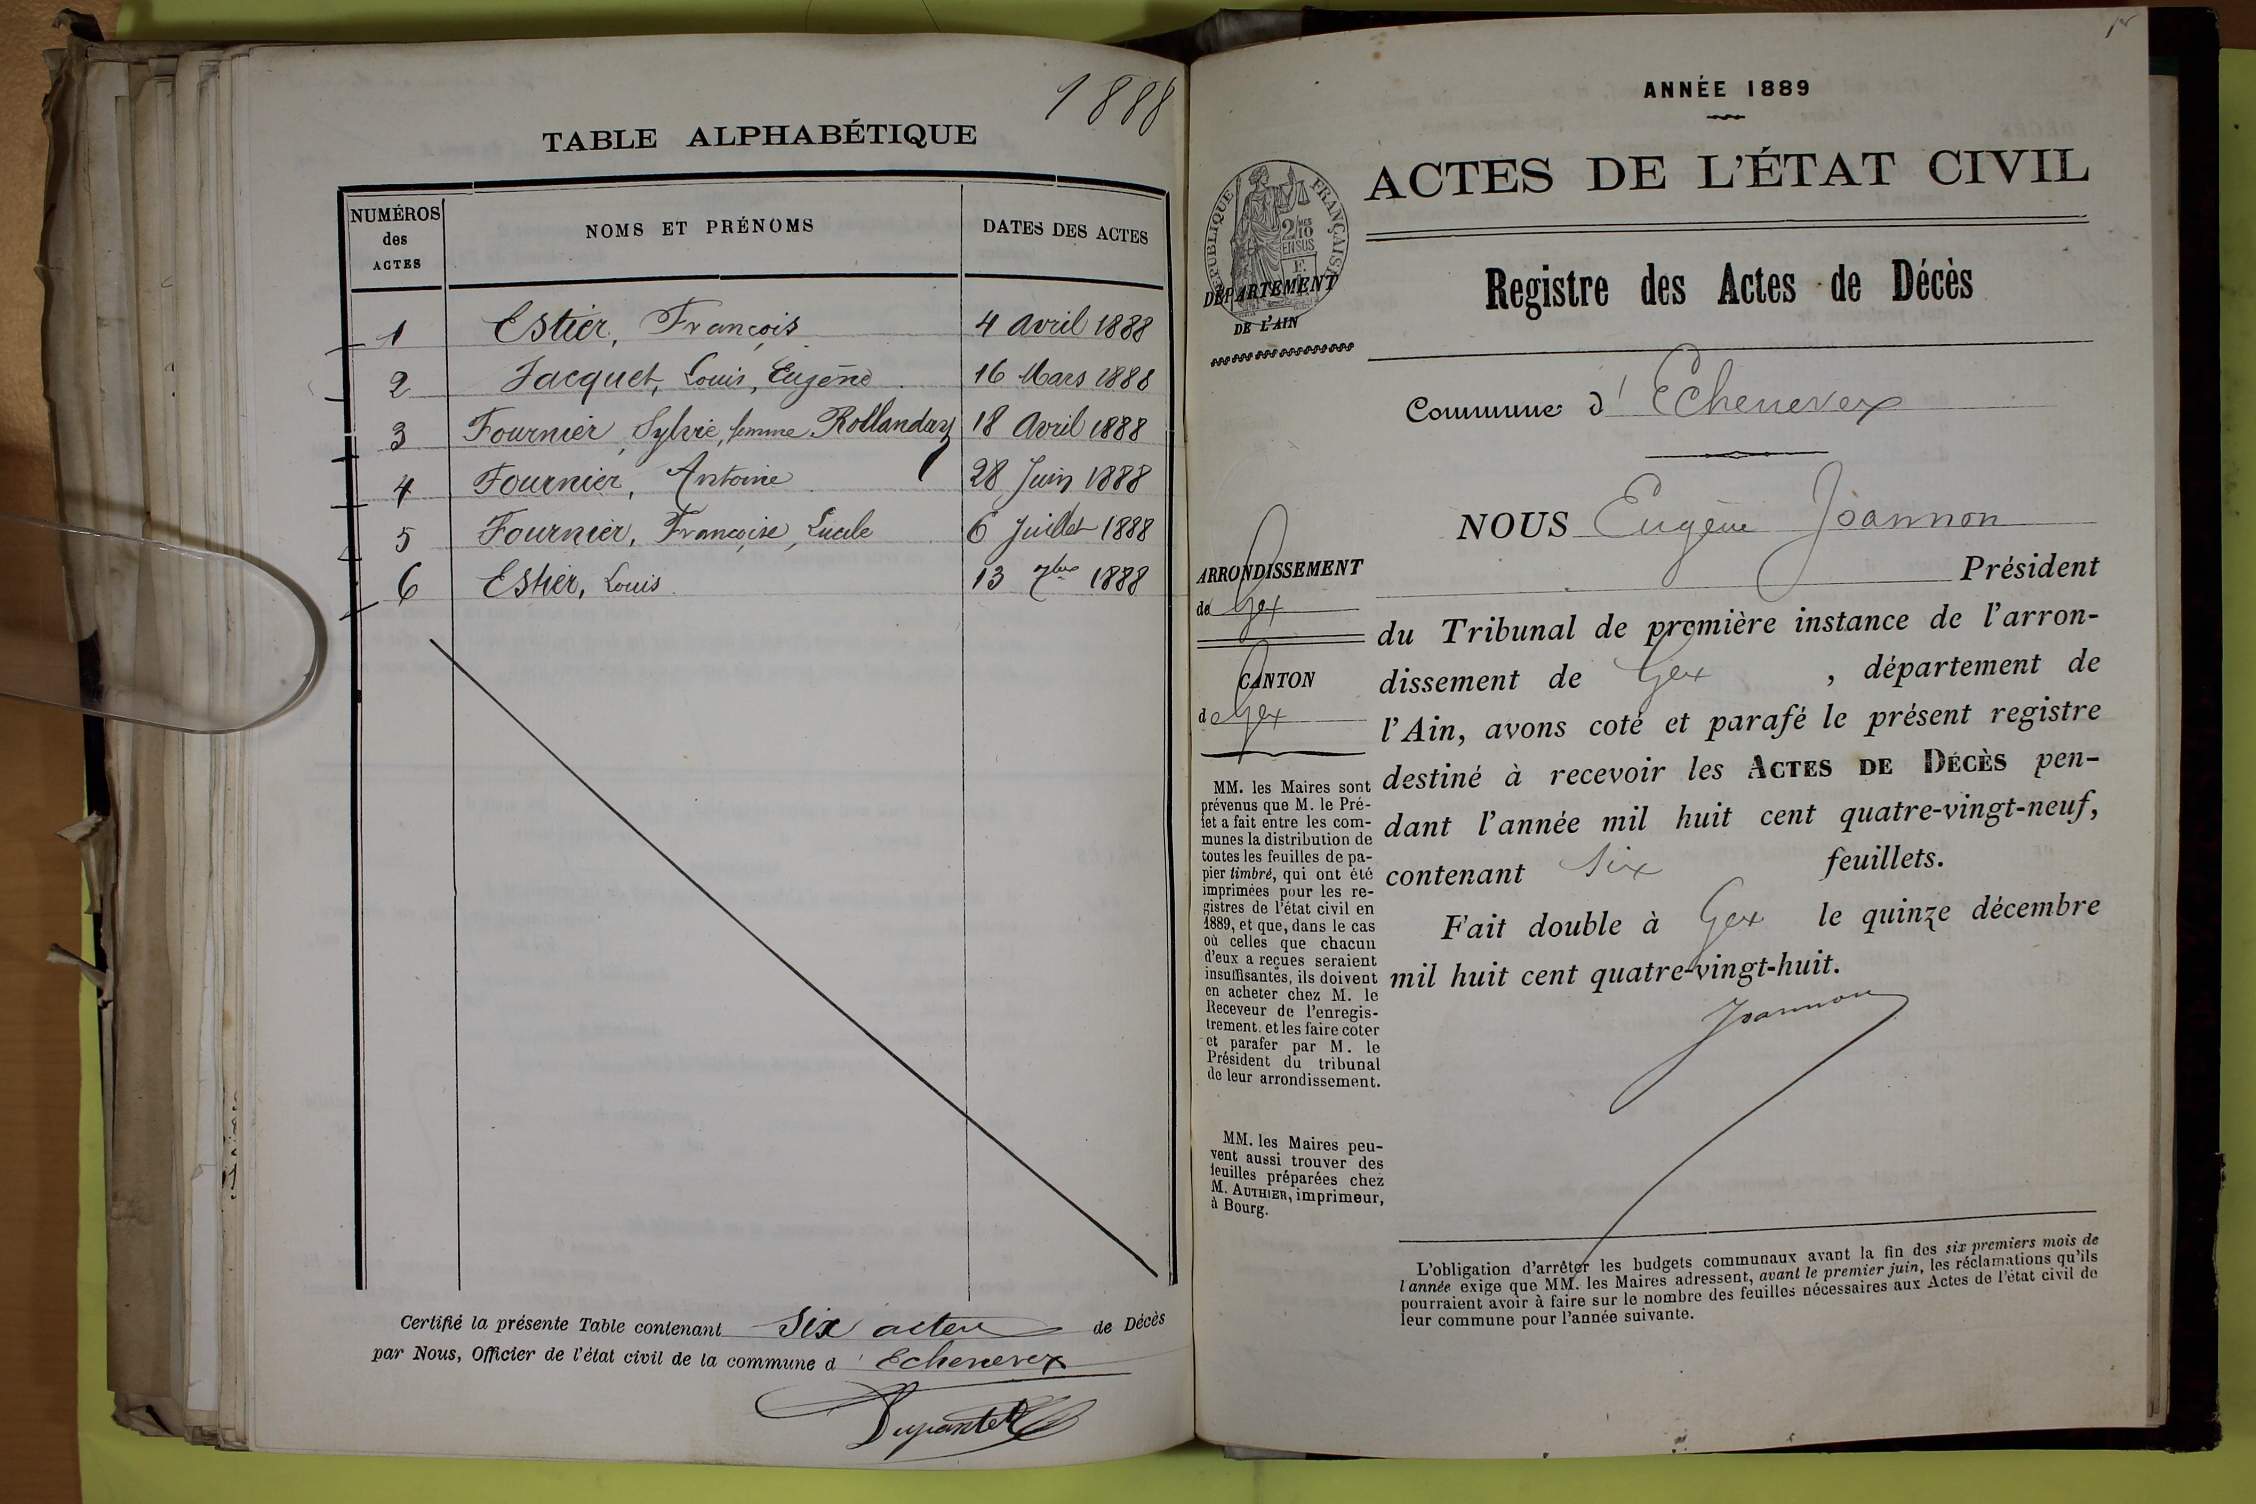 1888
TABLE ALPHABÉTIQUE
NUMÉROS
des
ACTES
NOMS ET PRÉNOMS
DATES DES ACTES
1 Estier, François 4 Avril 1888
2 Jacquet, Louis, Eugène 16 Mars 1888
3 Fournier, Sylvie, femme Rollanday 18 Avril 1888
4 Fournier, Antoine 28 Juin 1888
5 Fournier, Françoise, Lucile 6 Juillet 1888
6 Estier, Louis 13 7bre 1888
Certifié la présente Table contenant Six actes de Décès
par Nous, Officier de l'état civil de la commune d'Echenevex
1er
ANNÉE 1889
ACTES DE L'ÉTAT CIVIL
RÉPUBLIQUE FRANÇAISE
2/10 EN SUS
DÉPARTEMENT
DE L'AIN
Registre des Actes de Décès
Commune d'Echenevex
ARRONDISSEMENT
de Gex
CANTON
de Gex
MM. les Maires sont
prévenus que M. le Pré-
fet a fait entre les com-
munes la distribution de
toutes les feuilles de pa-
pier timbré, qui ont été
imprimées pour les re-
gistres de l'état civil en
1889, et que, dans le cas
où celles que chacun
d'eux a reçues seraient
insuffisantes, ils doivent
en acheter chez M. le
Receveur de l'enregis-
trement. et les faire coter
et parafer par M. le
Président du tribunal
de leur arrondissement.
MM. les Maires peu-
vent aussi trouver des
feuilles préparées chez
M. AUTHIER, imprimeur,
à Bourg.
NOUS Eugène Joannon
Président
du Tribunal de première instance de l'arron-
dissement de Gex, département de
l'Ain, avons coté et parafé le présent registre
destiné à recevoir les ACTES DE DÉCÈS pen-
dant l'année mil huit cent quatre-vingt-neuf,
contenant six feuillets.
Fait double à Gex le quinze décembre
mil huit cent quatre-vingt-huit.
Joannon
L'obligation d'arrêter les budgets communaux avant la fin des six premiers mois de
l'année exige que MM. les Maires adressent, avant le premier juin, les réclamations qu'ils
pourraient avoir à faire sur le nombre des feuilles nécessaires aux Actes de l'état civil de
leur commune pour l'année suivante.